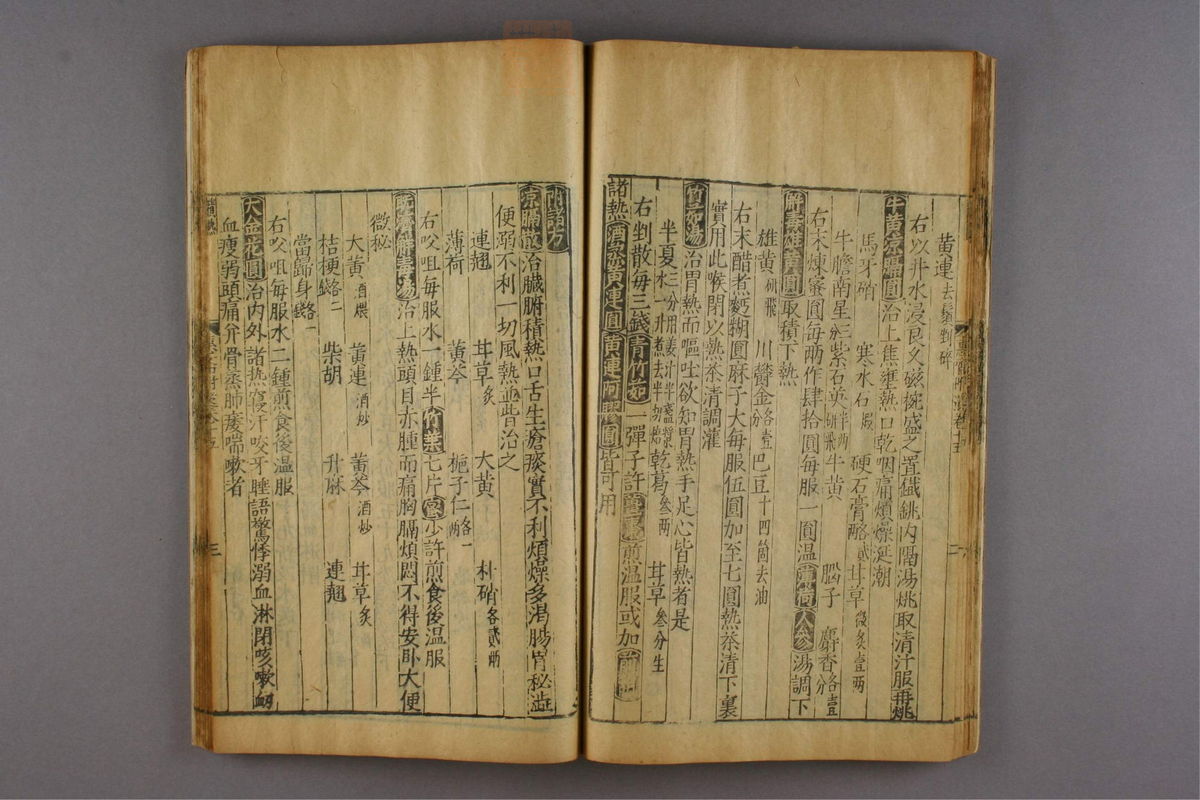 黃連去鬚剉碎
右以井水浸良久磁椀盛之置鐵銚內隔湯燒取清汁服再燒
牛黃凉膈圓治上焦壅熱口乾咽痛煩燥涎潮
馬牙硝 寒水石煅 硬石膏各貳兩 甘草微炙壹兩
牛膽南星 紫石英半兩研飛 牛黃 腦子 麝香各壹分
右末煉蜜圓每兩作肆拾圓每服一圓溫薄荷人參湯調下
解毒雄黃圓取積下熱
雄黃研飛 川鬱金各壹分 巴豆十四箇去油
右末醋煮麪糊圓麻子大每服伍圓加至七圓熱茶清下裏
實用此喉閉以熱茶清調灌
竹茹湯治胃熱而嘔吐欲知胃熱手足心皆熱者是
半夏三分用姜汁半盞漿水一升煮去半切焙 乾葛叁兩 甘草叁分生
右剉散每三錢青竹茹一彈子許煎溫服或加
諸熱酒蒸黃連圓黃連阿膠圓皆可用
附諸方
凉膈散治臟腑積熱口舌生瘡痰實不利煩燥多渴腸胃秘澁
便溺不利一切風熱並皆治之
連翹 甘草炙 大黃 朴硝各貳兩
薄荷 黃芩 梔子仁各一兩
右㕮咀每服水一鍾半竹葉七片蜜少許煎食後溫服
既濟解毒湯治上熱頭目赤腫而痛胸膈煩悶不得安卧大便
微秘
大黃酒煨 黃連酒炒 黃芩酒炒 甘草炙
桔梗各二錢 柴胡 升麻 連翹
當歸身各一錢
右㕮咀每服水二鍾煎食後溫服
大金花圓治內外諸熱寢汗咬牙睡語驚悸溺血淋閉咳嗽衂
血瘦弱頭痛并骨蒸肺痿喘嗽者